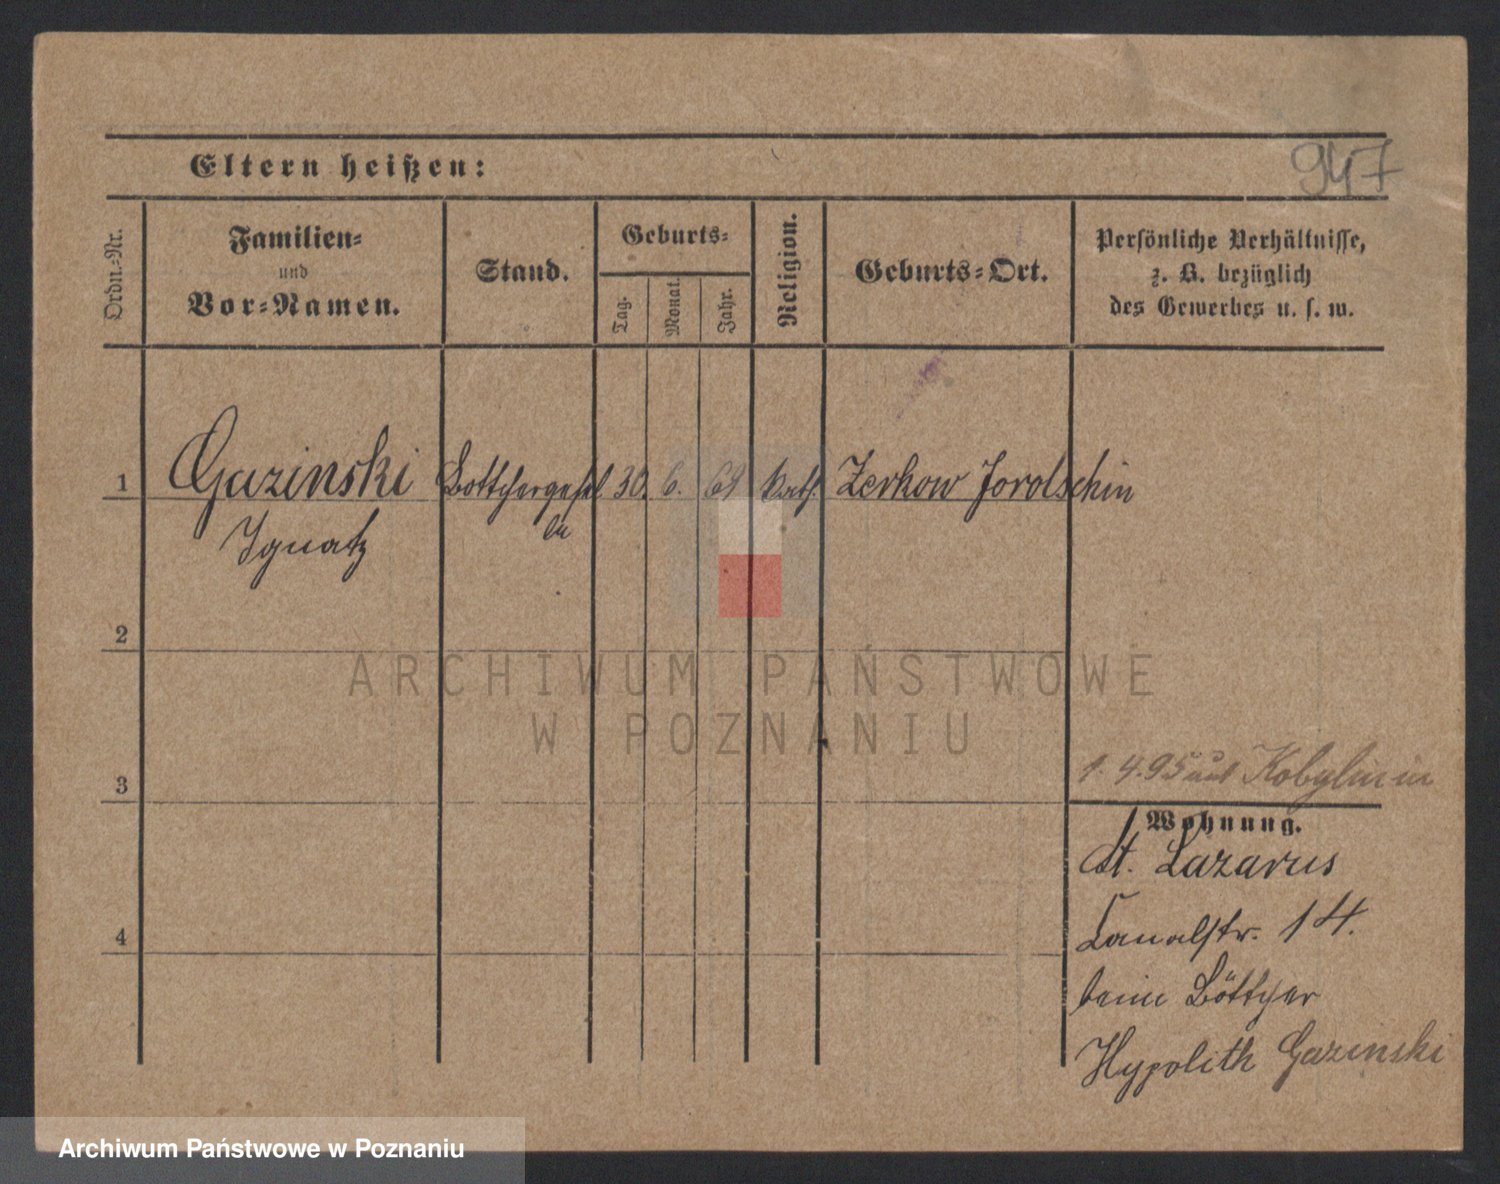 947
Eltern heißen:
Ordn.-Nr.
Familien-
und
Vor-Namen.
Stand.
Geburts-
Tag.
Monat.
Jahr.
Religion.
Geburts-Ort.
Persönliche Verhältnisse,
z. B. bezüglich
des Gewerbes u. s. w.
1 Gazinski Bottchergesel 30. 6. kath. Zerkow
Ignatz
2
ARCHIWUM PAŃSTWOWE
W POZNANIU
3
1. 4. 95 aus
Wohnung.
St. Lazarus
Canalstr. 14.
4
beim Böttcher
Hypolith Gazinski
Archiwum Państwowe w Poznaniu